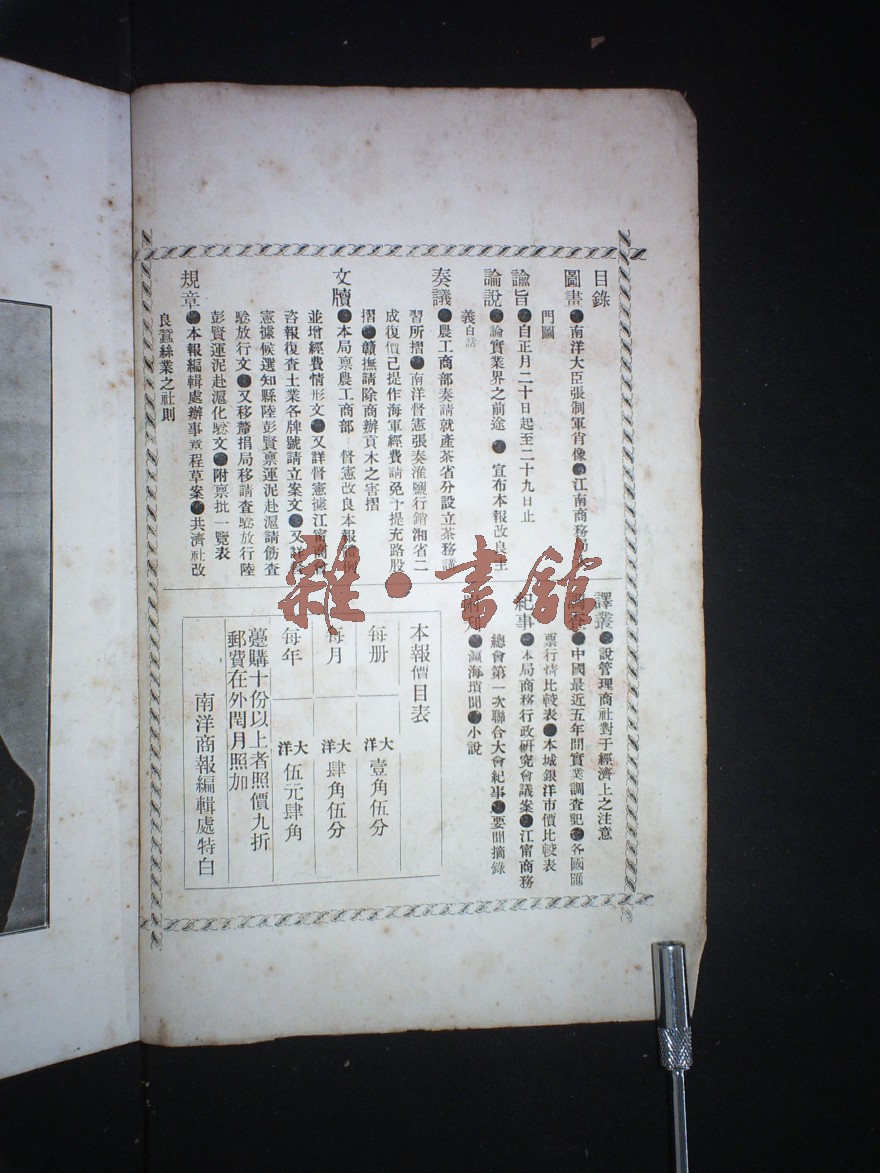 目錄
圖畫●南洋大臣張制軍肖像●江南商務局
門圖
諭旨●自正月二十日起至二十九日止
論說●論實業界之前途●宣布本報改良主
義白話
奏議●農工商部奏請就產茶省分設立茶務講
習所摺●南洋督憲張奏淮鹽行銷湘省二
成復價已提作海軍經費請免予提充路股
摺●贛撫請除商辦貢木之害摺
文牘●本局禀農工商部 督憲改良本報體例
並增經費情形文●又詳督憲據江甯商會
咨報復查土業各牌號請立案文●又詳
憲據候選知縣陸彭賢禀運泥赴滬請飭查
騐放行文●又移釐捐局移請查騐放行陸
彭賢運泥赴滬化騐文●附禀批一覽表
規章●本報編輯處辦事章程草案●共濟社改
良蠶絲業之社則
譯叢●說管理商社對于經濟上之注意
調查●中國最近五年間實業調查記●各國匯
票行情比較表●本城銀洋市價比較表
紀事●本局商務行政研究會議案●江甯商務
總會第一次聯合大會紀事●要聞摘錄
附刊●瀛海瑣聞●小說
本報價目表
每册 大洋壹角伍分
每月 大洋肆角伍分
每年 大洋伍元肆角
躉購十份以上者照價九折
郵費在外閏月照加
南洋商報編輯處特白
雜·書館